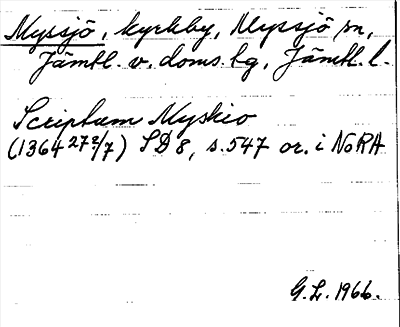 Myssjö, kyrkby, Myssjö sn,
Jämtl. v. doms.bg, Jämtl. l.
Scriptum Myskio
(1364 27?/7) SD 8, s. 547 or. i NoRA
G.L. 1966.